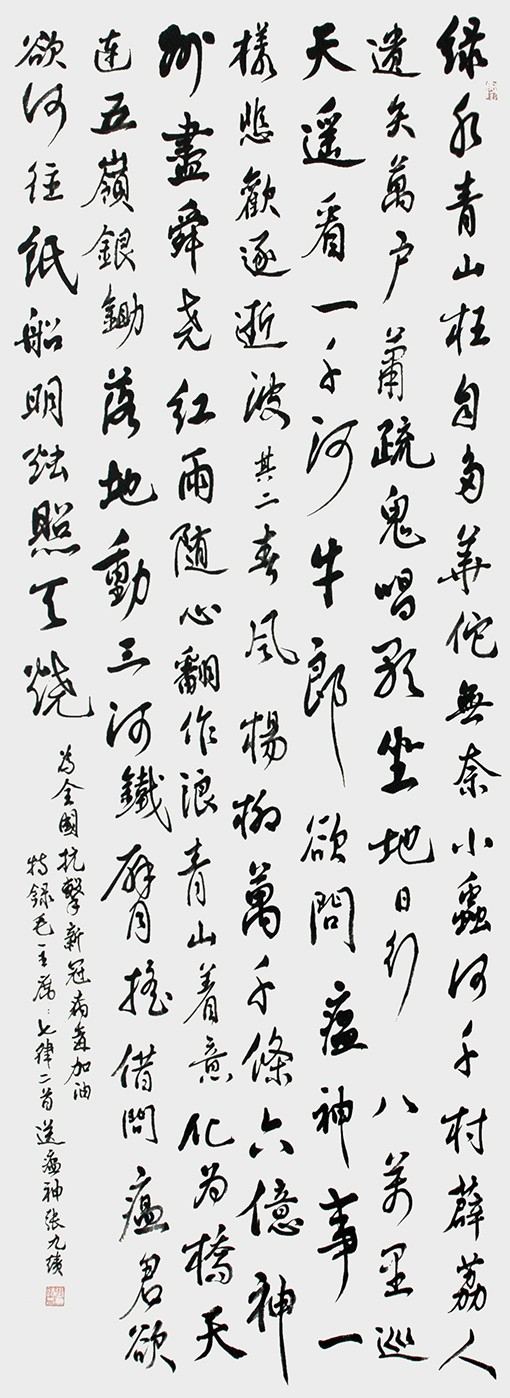 绿水青山枉自多華佗無奈小蟲何千村薜荔人
遺矢萬户蕭疏鬼唱歌坐地日行八萬里巡
天遥看一千河牛郎欲問瘟神事一
樣悲歡逐逝波其二春風楊柳萬千條六億神
州盡舜尧红雨随心翻作浪青山着意化为橋天
連五嶺銀鋤落地動三河鐵臂摇借問瘟君欲
欲何往紙船明烛照天燒
为全國抗擊新冠病毒加油
特録毛主席:七律二首送瘟神張九